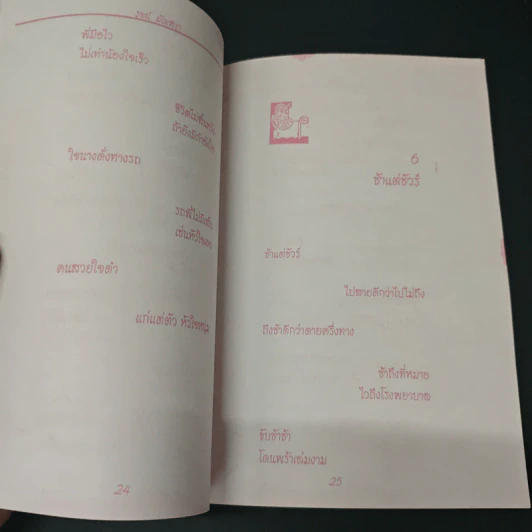 พี่มือไว
ไม่เท่าน้องใจเร็ว
ใจนางดั่งทางรถ
คนสวยใจดำ
แก่แต่ตัว หัวใจหนุ่ม
24
6
ช้าแต่ชัวร์
ช้าแต่ชัวร์
ไปสายดีกว่าไปไม่ถึง
ถึงช้าดีกว่าตายครึ่งทาง
ช้าถึงที่หมาย
ไวถึงโรงพยาบาล
ขับช้าช้า
โดนพร้าเล่มงาม
25